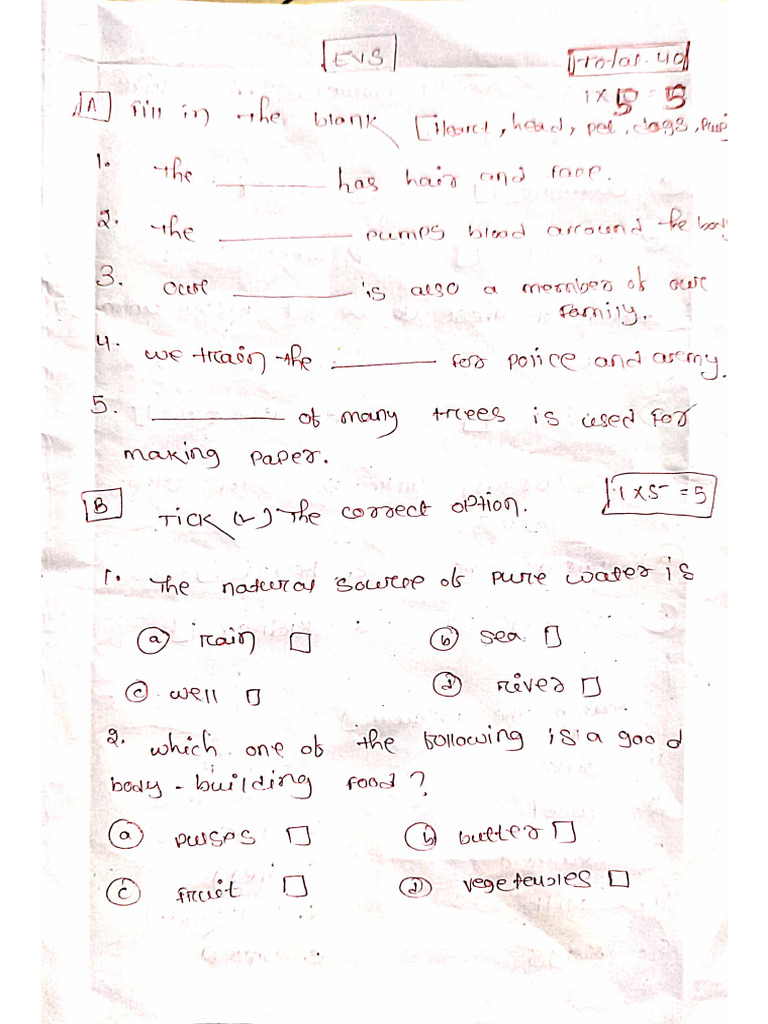 EVS
Total. 40
1 x 5 = 5
A Fill in the blank [Heart, head, pet, dogs, Pulp
1. The ________ has hair and face.
2. The ________ pumps blood around the body
3. Our ________ is also a member of our
family.
4. We train the ________ for police and army.
5. ________ of many trees is used for
making paper.
B Tick (✓) The correct option.
1 x 5 = 5
1. The natural source of pure water is
a rain □ b sea □
c well □ d river □
2. which one of the following is a good
body-building food?
a pulses □ b butter □
c fruit □ d vegetables □